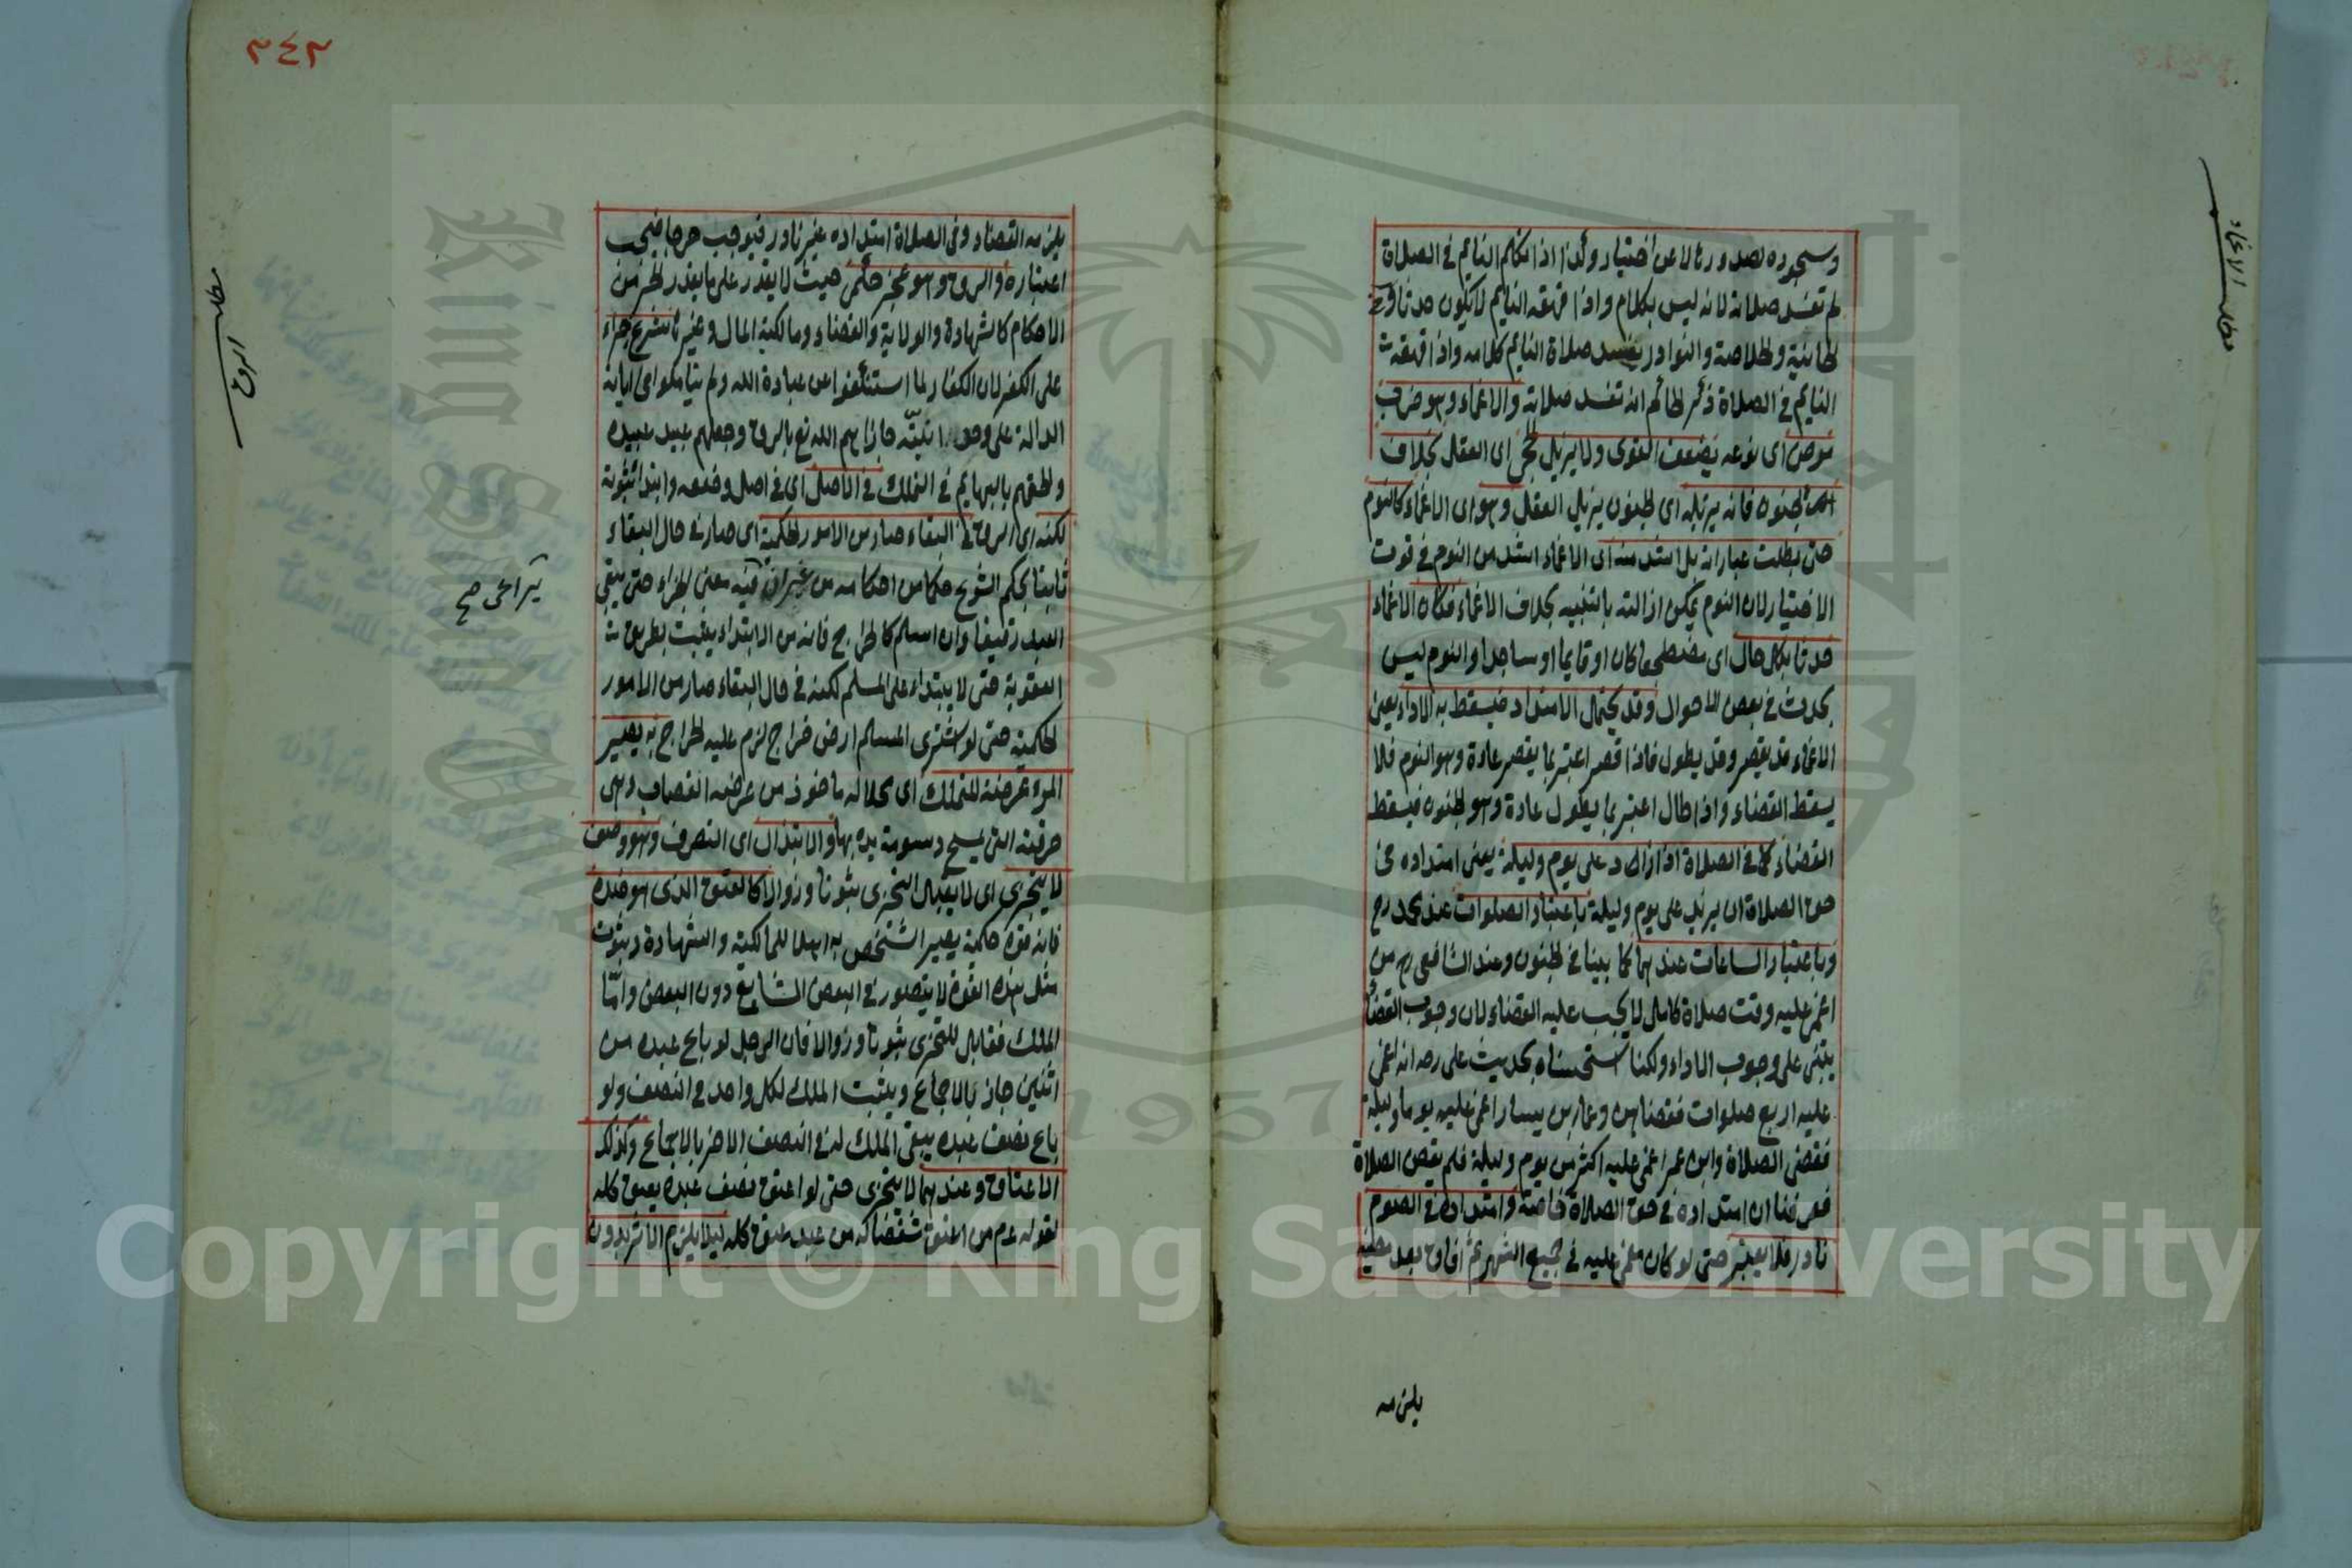 وسجوده لصدورها لا عن اختيار وكذا اذا تكلم النايم في الصلاة
لم تفسد صلاته لانه ليس بكلام واذا قهقه النايم لا يكون حدثا وفي
الخانية والخلاصة والنوادر يفسد صلاة النايم كلامه واذا قهقهت
النايم في الصلاة ذكر الحاكم انه تفسد صلاته والاغماء وهو ضرب
مرض اى نوعه يضعف القوى ولا يزيل الحجى اى العقل بخلاف
الجنون فانه يزيله اى الجنون يزيل العقل وهو اى الاغماء كالنوم
حتى بطلت عباراته بل اشد منه اى الاغماء اشد من النوم في فوت
الاختيار لان النوم يمكن ازالته بالتنبيه بخلاف الاغماء فكان الاغماء
حدثا بكل حال اى مضطجعا كان او قايما او ساجدا والنوم ليس
بحدث في بعض الاحوال وقد يحتمل الامتداد فيسقط به الاداء يعنى
الاغماء قد يقصر وقد يطول فاذا قصر اعتبر بما يقصر عادة وهو النوم فلا
يسقط القضاء واذا طال اعتبر بما يطول عادة وهو الجنون فيسقط
القضاء كما في الصلاة اذا زاد على يوم وليلة يعنى امتداده في
حق الصلاة ان يزيد على يوم وليلة باعتبار الصلوات عند محمد رح
وباعتبار الساعات عندهما كما بينا في الجنون وعند الشافعى رح من
اغمى عليه وقت صلاة كامل لا يجب عليه القضاء لان وجوب القضاء
يبتنى على وجوب الاداء ولكنا استحسناه بحديث على رضه انه اغمى
عليه اربع صلوات فقضاهن وعمار بن يسار اغمى عليه يوما وليلة
فقضى الصلاة وابن عمر اغمى عليه اكثر من يوم وليلة فلم يقض الصلاة
فعرفنا ان امتداده في حق الصلاة خاصة وامتداده في الصوم
نادر فلا يعتبر حتى لو كان مغمى عليه في جميع الشهر ثم افاق بعد مضيه
يلزمه
مطلب الاغماء
٢٤٢
يلزمه القضاء وفى الصلاة امتداده غير نادر فيوجب حرجا فيجب
اعتباره والرق وهو عجز حكمى حيث لا يقدر على ما يقدر الحر من
الاحكام كالشهادة والولاية والقضاء ومالكية المال وغيرها شرع جزاء
على الكفر لان الكفار لما استنكفوا عن عبادة الله ولم يتاملوا في اياته
الدالة على وحدانيته جازاهم الله تع بالرق وجعلهم عبيد عبيده
والحقهم بالبهايم في التملك في الاصل اى في اصل وضعه وابتدا ثبوته
لكنه اى الرق في البقاء صار من الامور الحكمية اى صار في حال البقاء
ثابتا بحكم الشرع حكما من احكامه من غير ان فيه معنى الجزاء حتى يبقى
العبد رقيقا وان اسلم كالخراج فانه من الابتداء يثبت بطريق
العقوبة حتى لا يبتداء على المسلم لكنه في حال البقاء صار من الامور
الحكمية حتى لو اشترى المسلم ارض خراج لزم عليه الخراج به يصير
المرء عرضة للتملك اى محلا له ماخوذ من عرضة القصاب وهى
خرقته التى يمسح دسومة يده بها والابتذال اى التصرف وهو وصف
لا يتجزى اى لا يقبل التجزى ثبوتا وزوالا كالعتق الذى هو ضده
فانه قوة حكمية يصير الشخص به اهلا للمالكية والشهادة وثبوت
مثل هذه القوة لا يتصور في البعض الشايع دون البعض وامّا
الملك فقابل للتجزى ثبوتا وزوالا فان الرجل لو باع عبده من
اثنين جاز بالاجماع ويثبت الملك لكل واحد في النصف ولو
باع نصف عبده يبقى الملك له في النصف الاخر بالاجماع وكذلك
الاعتاق وعندهما لا يتجزى حتى لو اعتق نصف عبده يعتق كله
لقوله عم من اعتق شقصا له من عبد عتق كله ليلا يلزم الاثر بدون
مطلب الرق
1957
Copyright © King Saud University